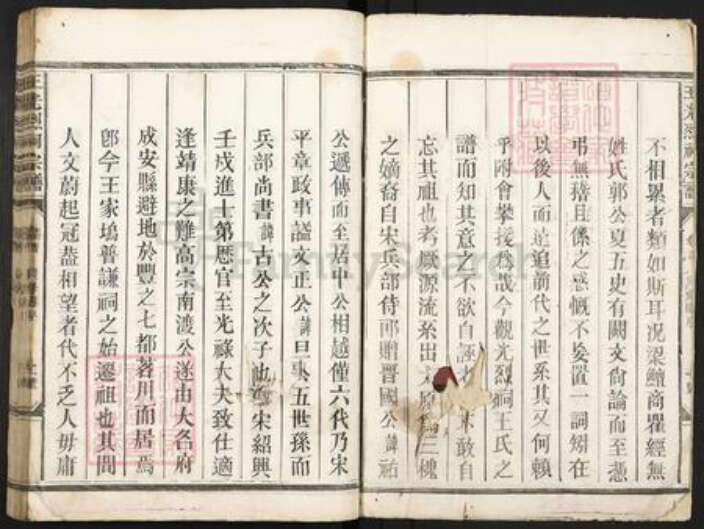 不相累者類如斯耳況梁鱣商瞿經無
姓氏郭公夏五史有闕文尚論而至憑
弔無稽且係之感慨不妄置一詞矧在
以後人而追前代之世系其又何賴
乎附會攀援為哉今觀光烈祠王氏之
譜而知其意之不欲自誣 敢自
忘其祖也考厥源流系出太原 三槐
之嫡裔自宋兵部侍郎贈晉國公諱祐
公遞傳而至居中公相越僅六代乃宋
平章政事諡文正公諱旦 五世孫而
兵部尚書諱古公之次子也 宋紹興
壬戌進士第歷官至光祿大夫致仕適
逢靖康之難高宗南渡公遂由大名府
成安縣避地於豐之七都 川而居焉
卽今王家塢普謙祠之始遷祖也其間
人文蔚起冠葢相望者代不乏人毋庸
FamilySearch